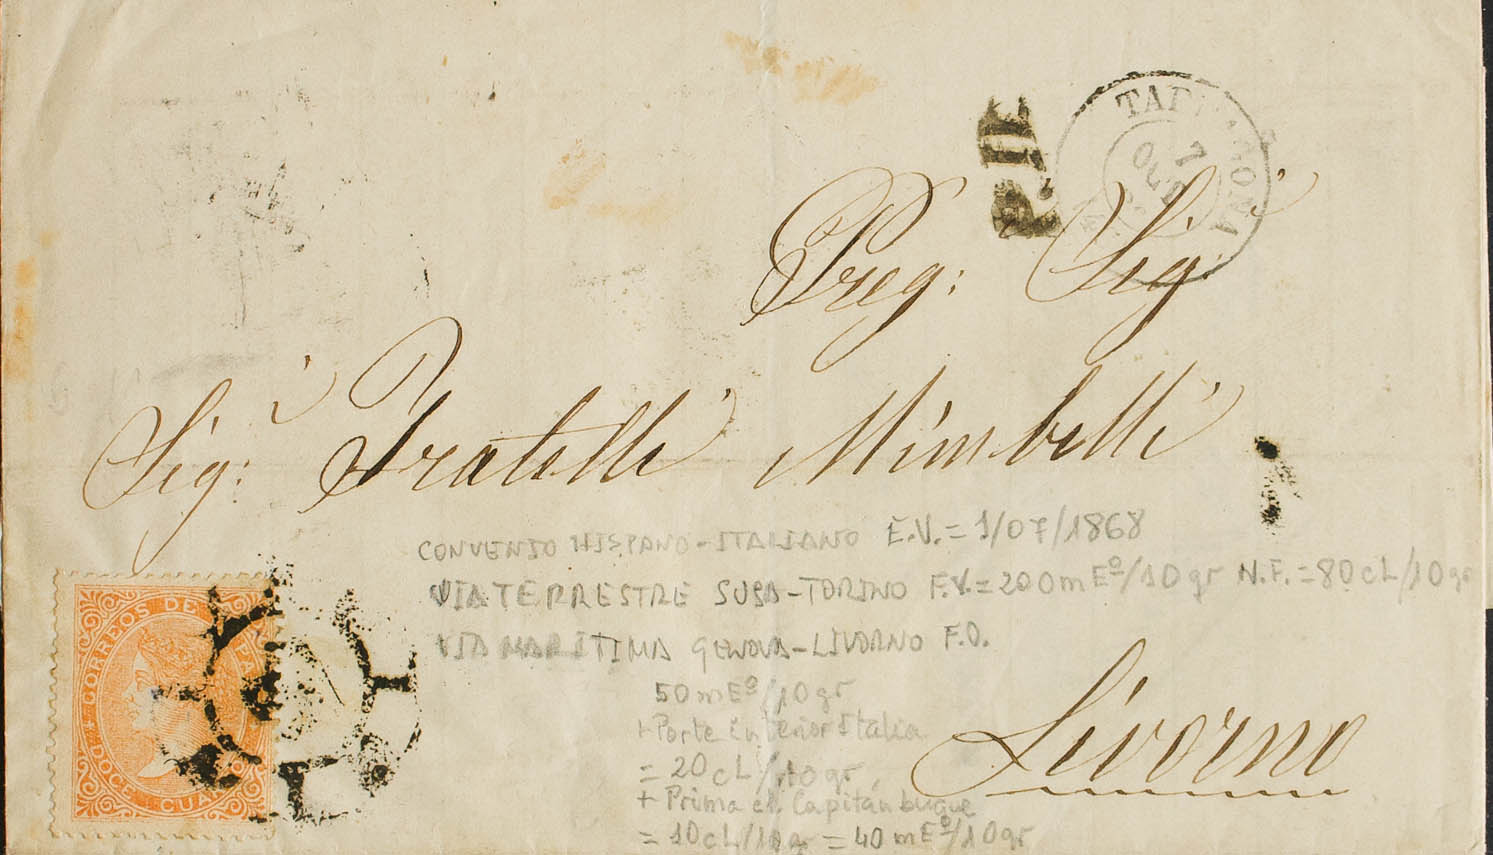 P.I.E.
TARRAGONA
7
OCT
Preg: Sigʳⁱ
Sigʳⁱ: Fratelli Mimbelli
CONVENIO HISPANO-ITALIANO E.V.=1/07/1868
VIA TERRESTRE SUSA-TORINO F.V.=200mEº/10gr N.F.=80cL/10gr
VIA MARITIMA GENOVA-LIVORNO F.O.
50mEº/10gr
+Porte interior Italia
=20cL/10gr
+ Prima el Capitán buque
=10cL/10gr=40mEº/10gr
Livorno
CORREOS DE ESPAÑA
DOCE CUAR